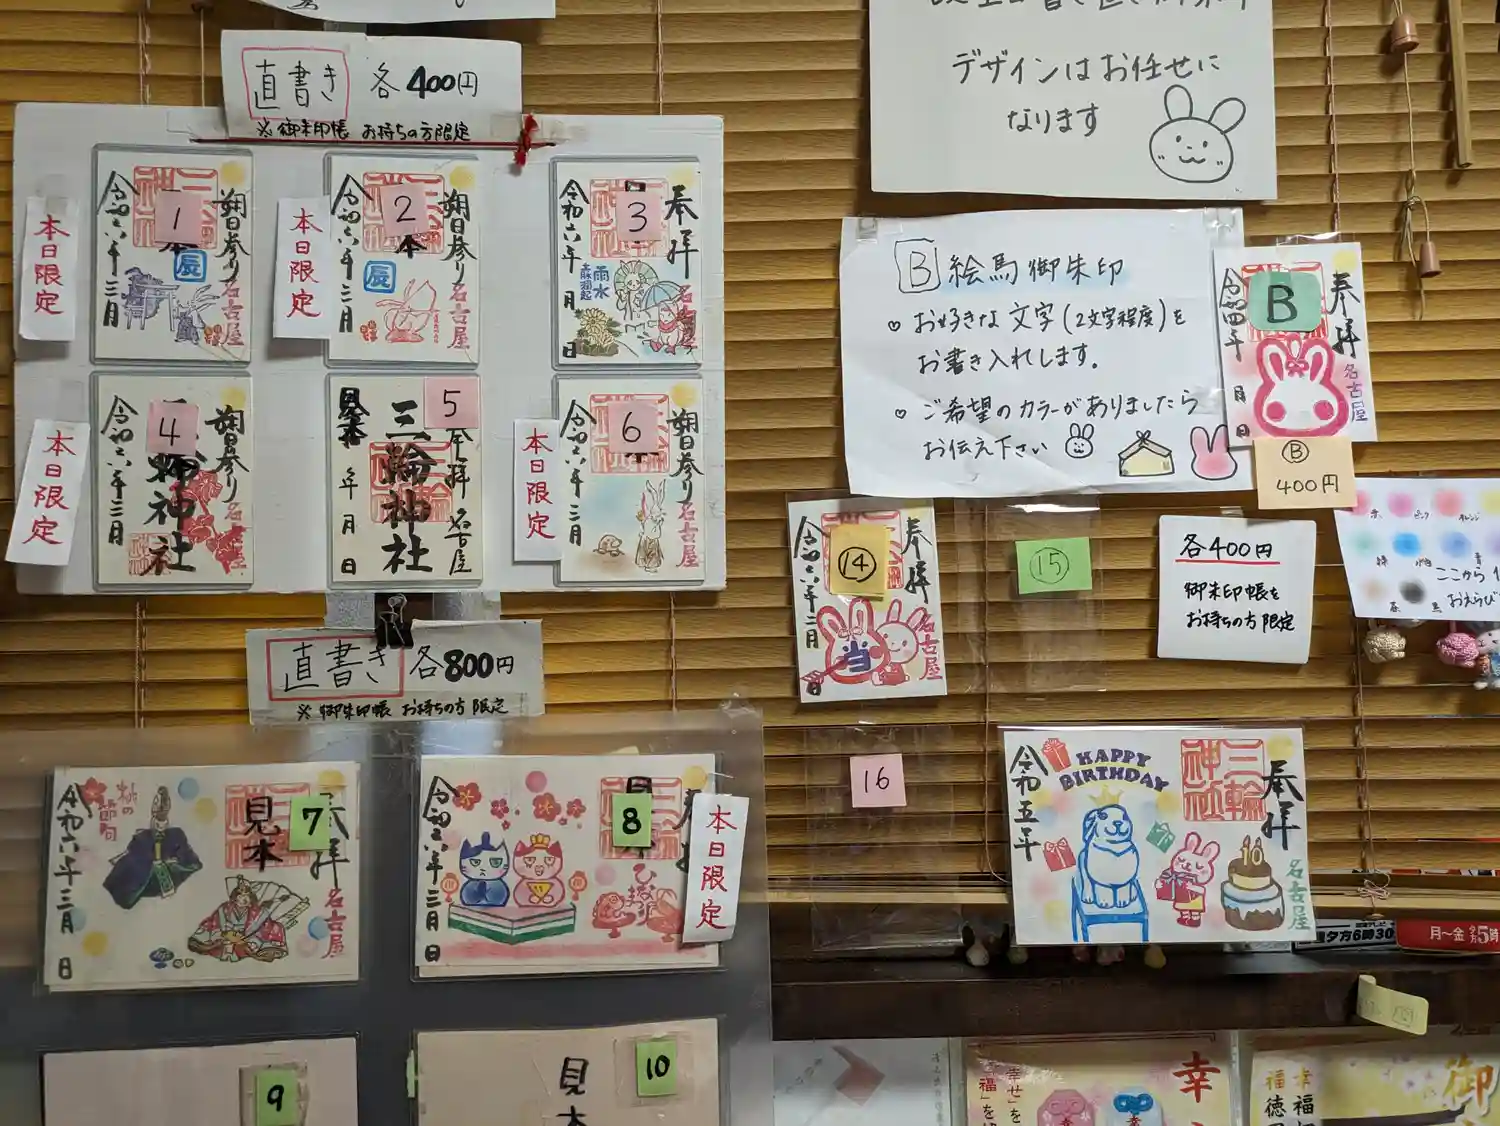 直書き 各400円
※御朱印帳 お持ちの方限定
本日限定
1
朔日参り
名古屋
辰
令和六年三月
本日限定
2
本
朔日参り
名古屋
辰
令和六年三月
3
奉拝
雨水
名古屋
令和六年 月 日
本日限定
4
朔日参り
神社
令和六年三月
5
見本
奉拝
名古屋
三輪神社
年 月 日
本日限定
6
朔日参り
名古屋
令和六年三月
直書き 各800円
※御朱印帳 お持ちの方限定
7
見本
奉拝
名古屋
桃の節句
令和六年三月 日
8
ひなまつり
令和六年三月 日
本日限定
9
10
見本
デザインはお任せに
なります
B 絵馬御朱印
お好きな文字(2文字程度)を
お書き入れします。
ご希望のカラーがありましたら
お伝え下さい
B
奉拝
名古屋
令和四年 月 日
B
400円
14
奉拝
名古屋
令和六年二月 日
15
各400円
御朱印帳を
お持ちの方限定
16
赤 ピンク オレンジ
ここから
おえらび
茶 黒
HAPPY
BIRTHDAY
三輪神社
奉拝
名古屋
令和五年
10
夕方6時30
月〜金 夕方5時
幸
幸せ」を
福」を
幸福
福徳
御